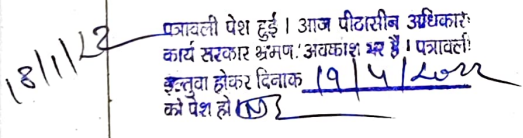 18/1/22
पत्रावली पेश हुई। आज पीठासीन अधिकारी
कार्य सरकार भ्रमण/अवकाश पर है। पत्रावली
होकर दिनांक 19/4/2022
को पेश हो